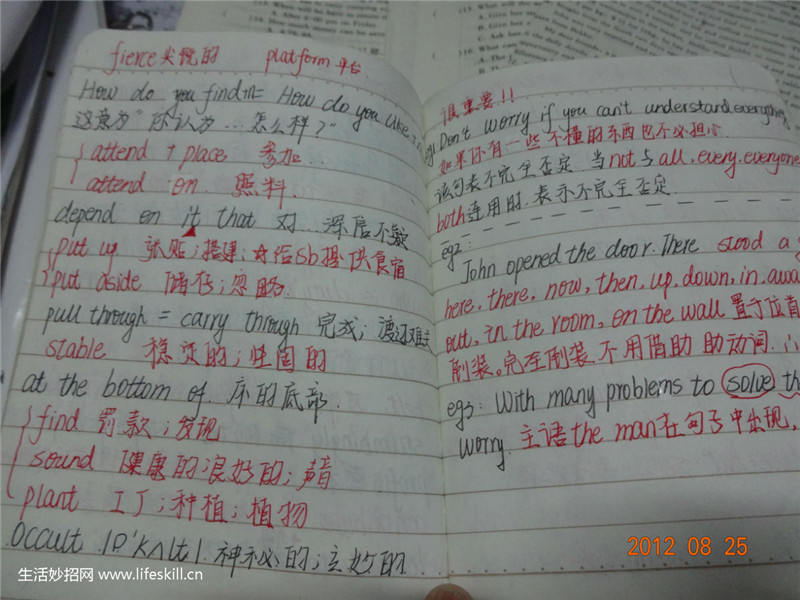 fierce 尖锐的 platform 平台
How do you find sth = How do you like
这意为"你认为...怎么样?"
attend + place 参加...
attend on 照料.
depend on it that 对...深信不疑
put up 张贴;搭建;为给sb提供食宿
put aside 储存;忽略.
pull through = carry through 完成; 渡过难关
stable 稳定的;牢固的
at the bottom of. 底部.
find 罚款;发现
sound 健康的良好的;声音
plant 工厂;种植;植物
occult 神秘的;玄妙的
很重要!!
Don't worry if you can't understand everything
如果你有一些不懂的东西也不必担心.
该句表不完全否定. 当not与all.every.everyone
both连用时.表示不完全否定.
eg2:
John opened the door. There stood a
here, there, now, then, up, down, in, away
out, in the room, on the wall 置于位首
倒装。完全倒装 不用借助 助动词.
eg3: With many problems to solve
worry. 主语the man在句子中出现,
2012 08 25
生活妙招网 www.lifeskill.cn